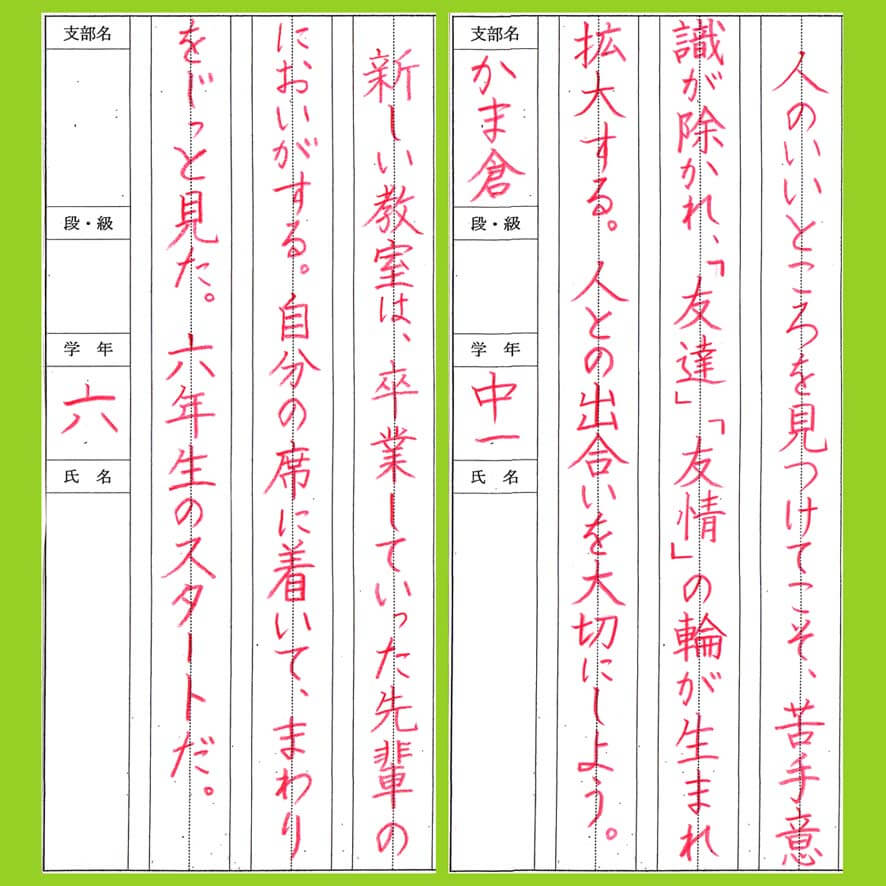 人のいいところを見つけてこそ、苦手意
識が除かれ、「友達」「友情」の輪が生まれ
拡大する。人との出合いを大切にしよう。
支部名
かま倉
段・級
学年
中一
氏名
新しい教室は、卒業していった先輩の
においがする。自分の席に着いて、まわり
をじっと見た。六年生のスタートだ。
支部名
段・級
学年
六
氏名